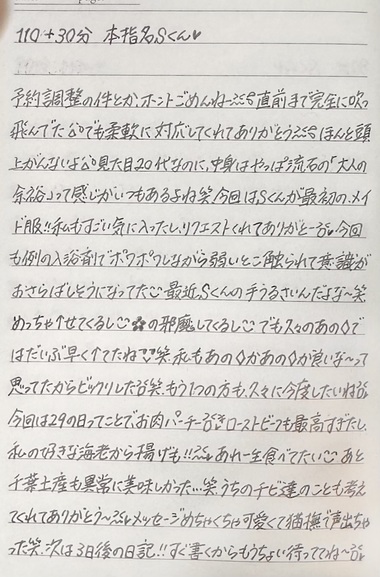 110+30分 本指名Sくん♥
予約調整の件とか、ホントごめんね〜直前まで完全に吹っ
飛んでた でも柔軟に対応してくれてありがとう ほんと頭
上がんないよ 見た目20代なのに、中身はやっぱ流石の「大人の
余裕」って感じがいつもあるよね笑 今回はSくんが最初の、メイ
ド服!!私もすごい気に入ったし、リクエストくれてありがと〜 今回
も例の入浴剤でポワポワしながら弱いとこ触られて意識が
おさらばしそうになってた 最近、Sくんの手うるさいんだよな〜笑
めっちゃ↑せてくるし の邪魔してくるし でも久々のあの◇で
はだいぶ早く↑てたね 笑 私もあの◇かあの◇が良いな〜って
思ってたからビックリした 笑 もう1つの方も、久々に今度したいね
今回は29の日ってことで、お肉パーチー ローストビーフも最高すぎたし、
私の好きな海老から揚げも!! あれ一生食べてたい あと
千葉土産も異常に美味しかった…笑 うちのチビ達のことも考え
てくれてありがとう〜 メッセージめちゃくちゃ可愛くて猫撫で声出ちゃ
った笑 次は3日後の日記!!すぐ書くからもうちょい待っててね〜